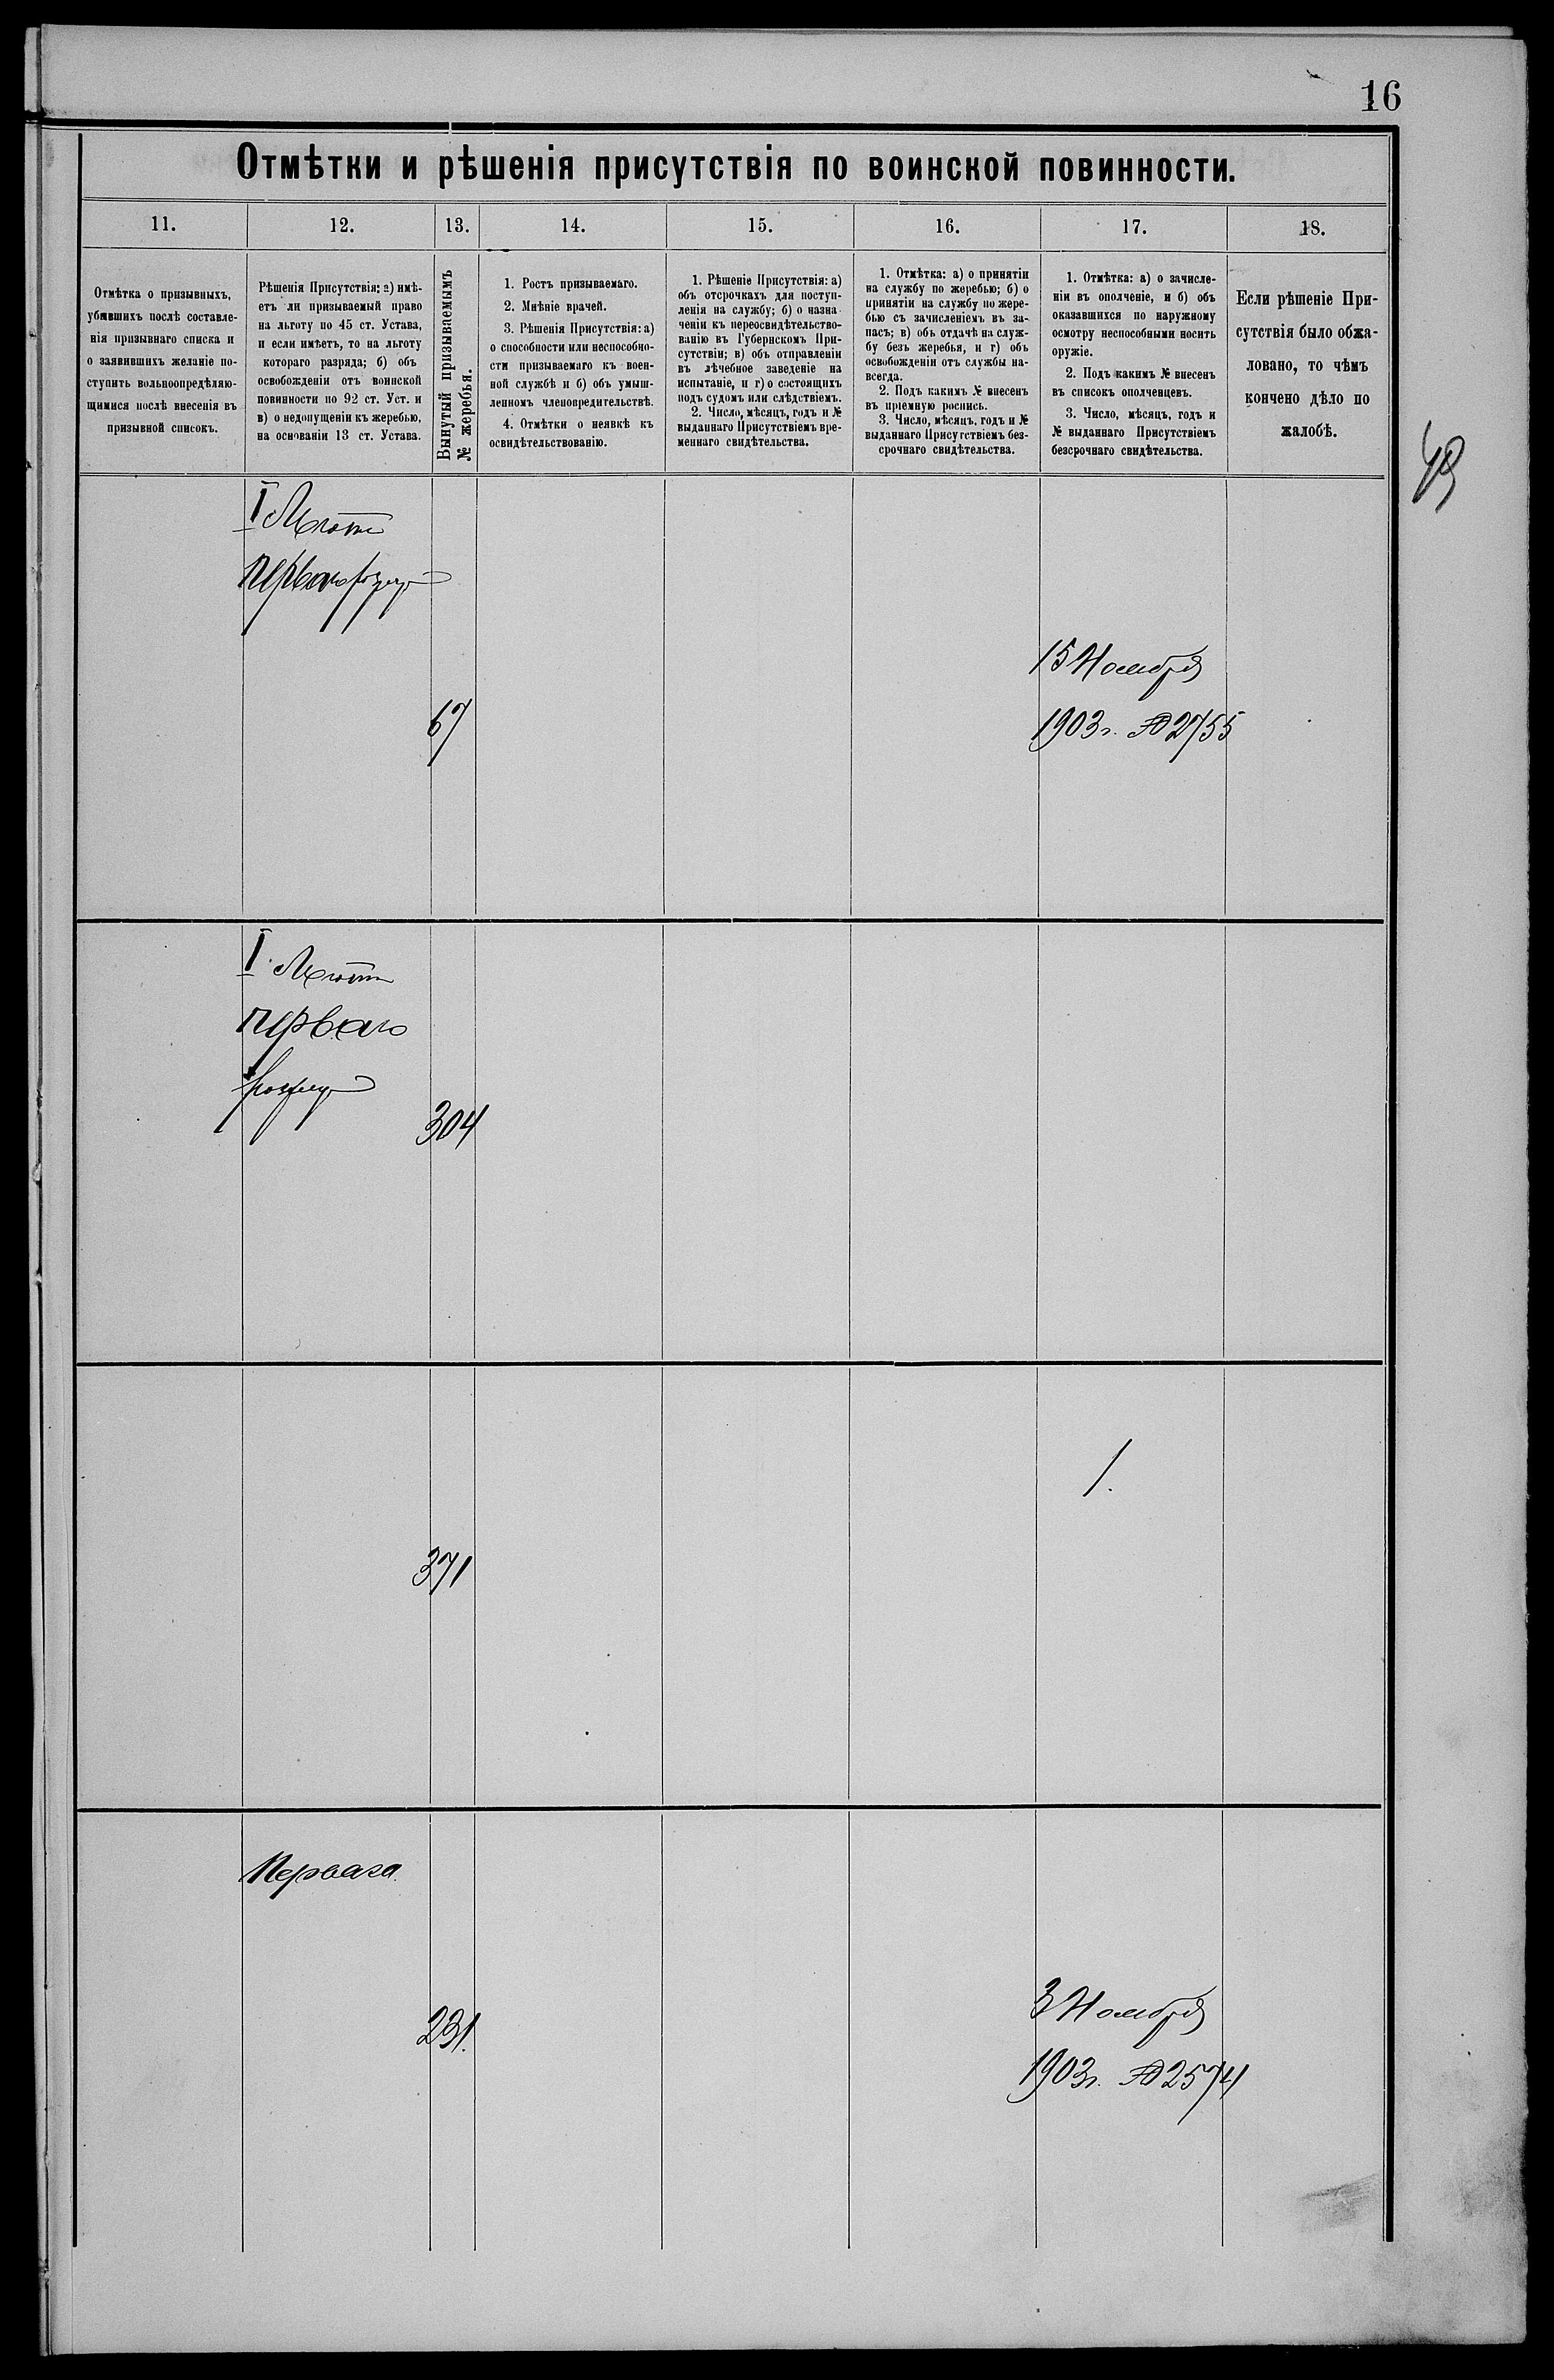 16
Отмѣтки и рѣшенія присутствія по воинской повинности.
11.
12.
13.
14.
15.
16.
17.
18.
Отмѣтка о призывныхъ,
убывшихъ послѣ составле-
нія призывнаго списка и
о заявившихъ желаніе по-
ступить вольноопредѣляю-
щимися послѣ внесенія въ
призывной списокъ.
Рѣшенія Присутствія: а) имѣ-
етъ ли призываемый право
на льготу по 45 ст. Устава,
и если имѣетъ, то на льготу
котораго разряда; б) объ
освобожденіи отъ воинской
повинности по 92 ст. Уст. и
в) о недопущеніи къ жеребью,
на основаніи 13 ст. Устава.
Вынутый призываемымъ
№ жеребья.
1. Ростъ призываемаго.
2. Мнѣніе врачей.
3. Рѣшенія Присутствія: а)
о способности или неспособно-
сти призываемаго къ воен-
ной службѣ и б) объ умыш-
ленномъ членовредительствѣ.
4. Отмѣтки о неявкѣ къ
освидѣтельствованію.
1. Рѣшеніе Присутствія: а)
объ отсрочкахъ для поступ-
ленія на службу; б) о назна-
ченіи къ переосвидѣтельство-
ванію въ Губернскомъ При-
сутствіи; в) объ отправленіи
въ лѣчебное заведеніе на
испытаніе, и г) о состоящихъ
подъ судомъ или слѣдствіемъ.
2. Число, мѣсяцъ, годъ и №
выданнаго Присутствіемъ вре-
меннаго свидѣтельства.
1. Отмѣтка: а) о принятіи
на службу по жеребью; б) о
принятіи на службу по жере-
бью съ зачисленіемъ въ за-
пасъ; в) объ отдачѣ на служ-
бу безъ жеребья, и г) объ
освобожденіи отъ службы на-
всегда.
2. Подъ какимъ № внесенъ
въ пріемную роспись.
3. Число, мѣсяцъ, годъ и №
выданнаго Присутствіемъ без-
срочнаго свидѣтельства.
1. Отмѣтка: а) о зачисле-
ніи въ ополченіе, и б) объ
оказавшихся по наружному
осмотру неспособными носить
оружіе.
2. Подъ какимъ № внесенъ
въ списокъ ополченцевъ.
3. Число, мѣсяцъ, годъ и
№ выданнаго Присутствіемъ
безсрочнаго свидѣтельства.
Если рѣшеніе При-
сутствія было обжа-
ловано, то чѣмъ
кончено дѣло по
жалобѣ.
I
перваго
67
15 Ноября
1903 г. № 2755
I
перваго
304
371
1.
Перваго
231.
3 Ноября
1903 г. № 2574